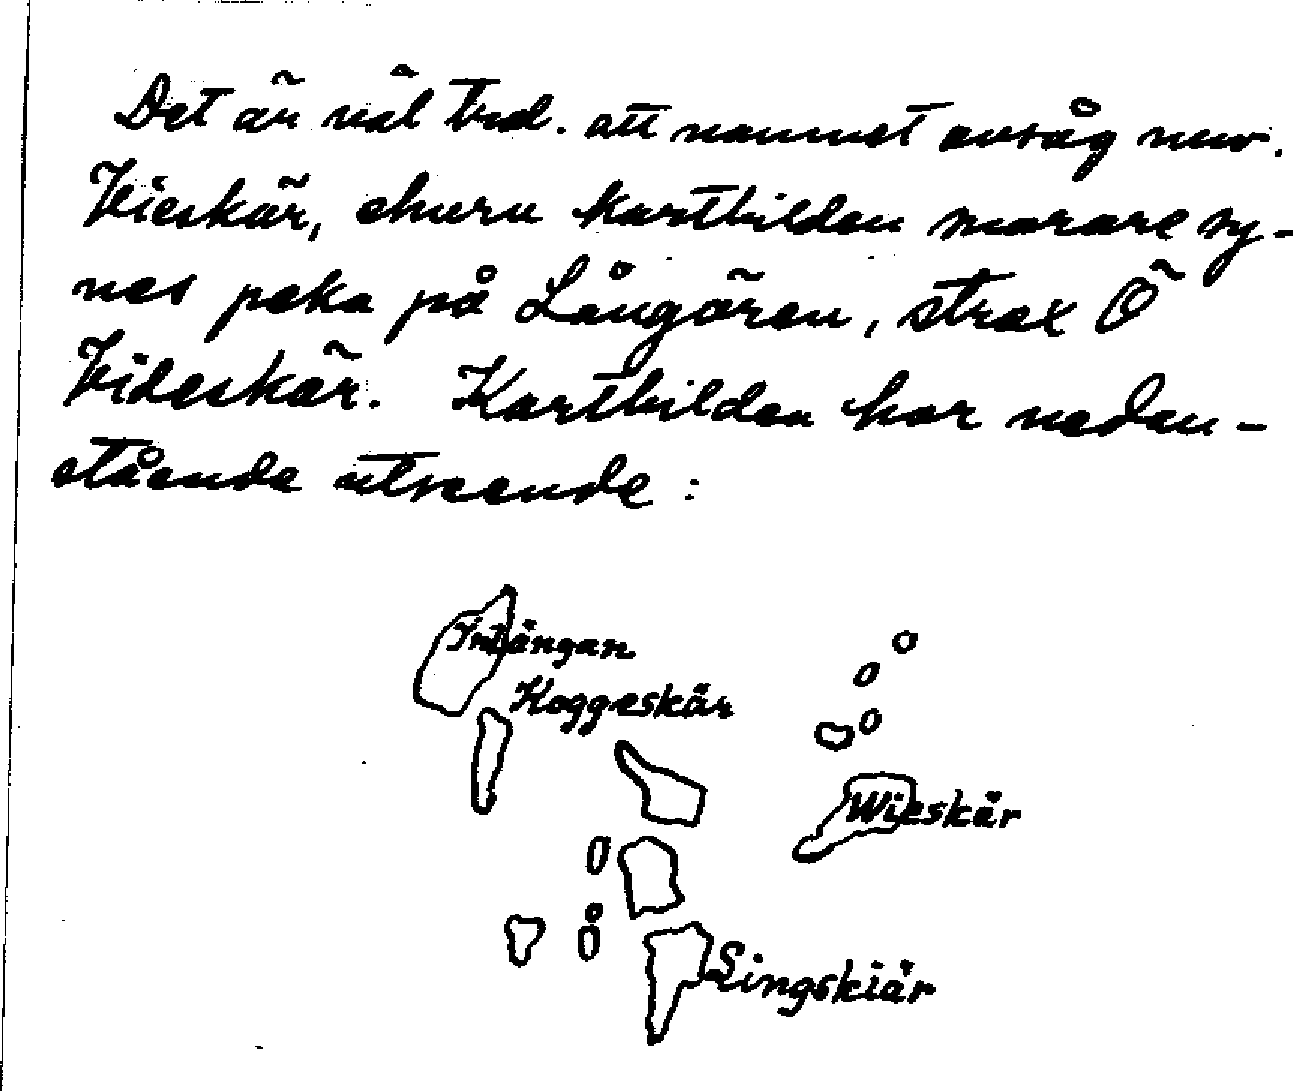 Det är väl trol. att namnet avsåg nuv.
Vieskär, ehuru kartbilden snarare sy-
nes peka på Långören, strax Ö
Videskär. Kartbilden har nedan-
stående utseende:
Intängan
Koggeskär
Wieskär
Singskiär